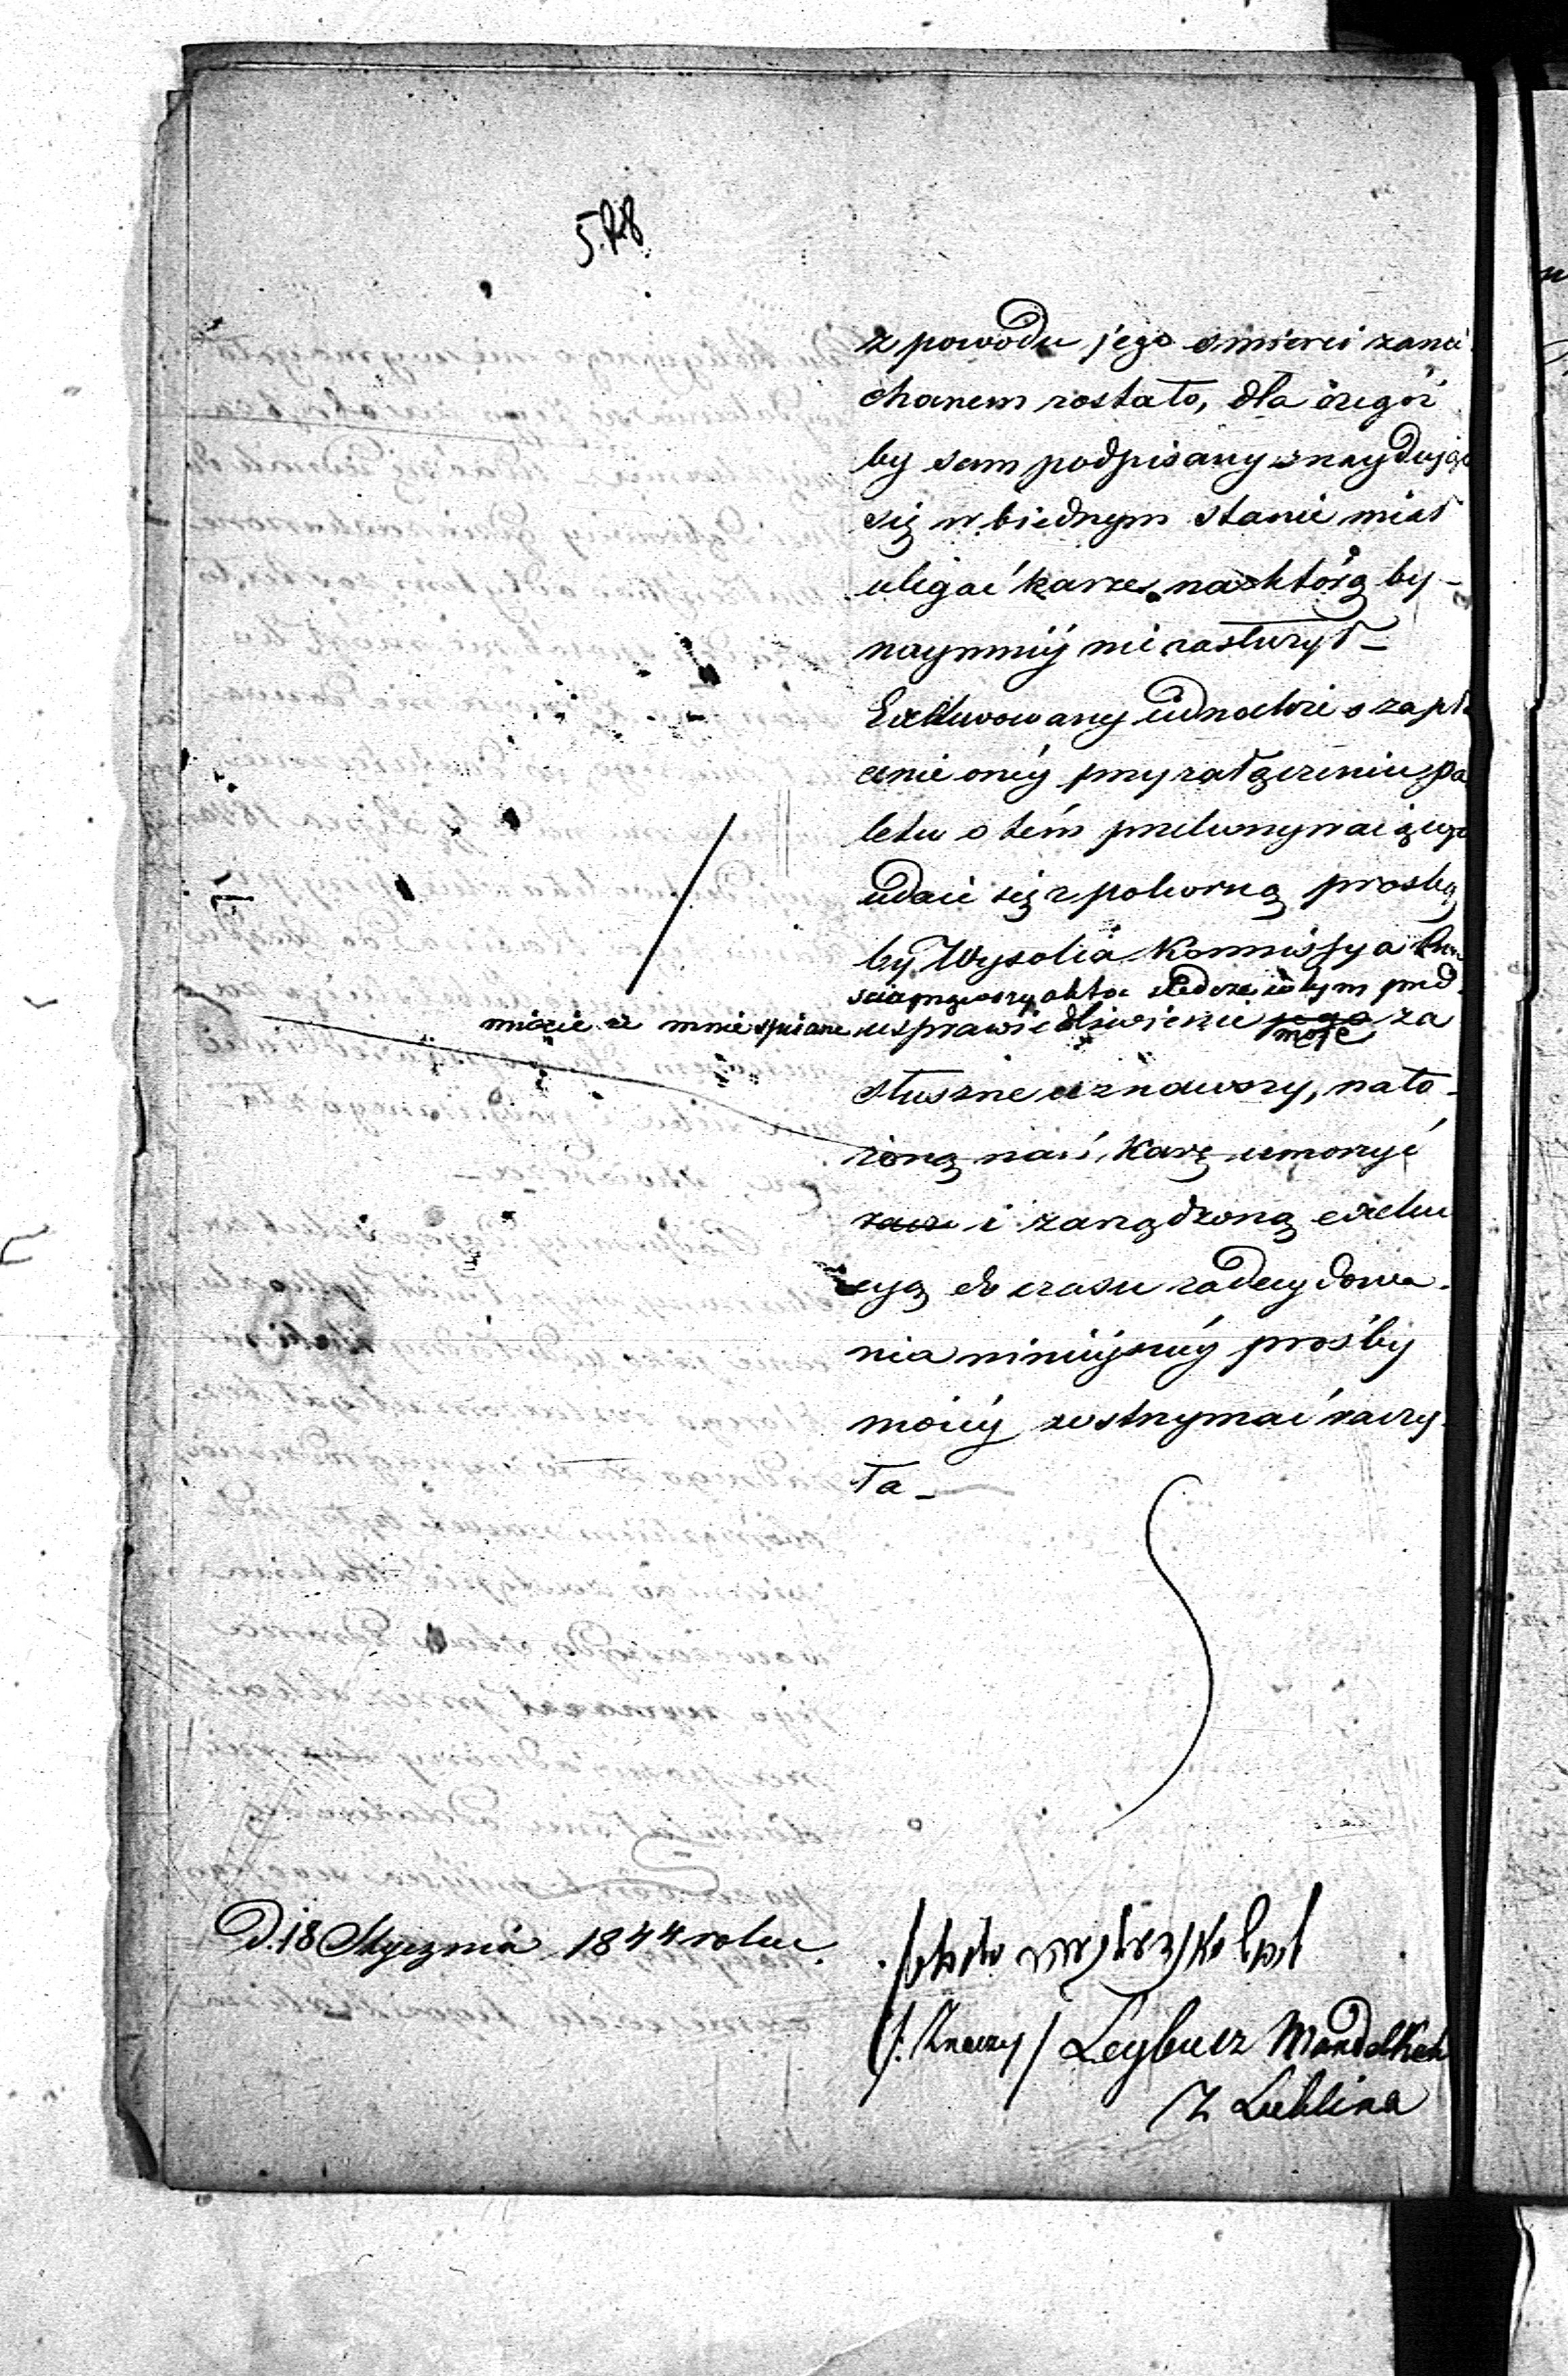 z powodu jego smierci zanie
chanem zostało, dla czegóż
by sam podpisany znayduiąc
się w biednym stanie miał
ulegać karze na którą by-
naymniéy nie zasłużył –
Exekwowany jednakże o zapła
cenie onéy przy załączeniu pa
letu o tém przekonywaiącego
udaie się z pokorną prosbą
by Wysoka Kommissya
sciągnąwszy akta śledcze w tym przed
miocie ze mnie spisane usprawiedliwienie jego za
moje
słuszne uznawszy, nało-
żoną nań karę umorzyć
i zarządzoną exeku
cyą do czasu zadecydowa-
nia niniéyszéy prośby
moiéy wstrzymać raczy-
ła –
D. 18 Stycznia 1844 roku
/: Znaczy / Leybusz Mandelker
z Lublina